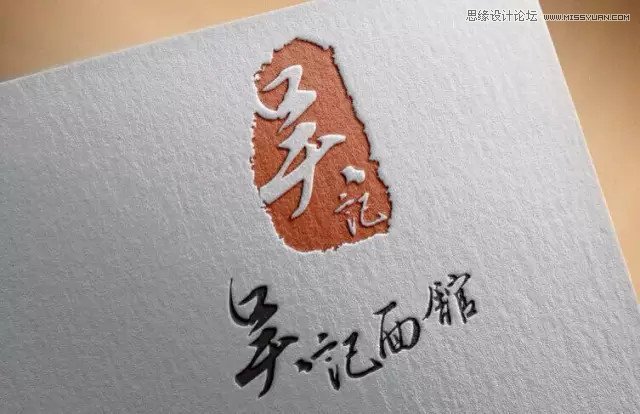 思缘设计论坛
WWW.MISSYUAN.COM
吴記
吴記面館